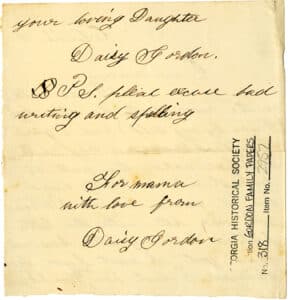 your loving Daughter
Daisy Gordon.
P S. pleas excuse bad
writing and spelling
For mama
with love from
Daisy Gordon
ORGIA HISTORICAL SOCIETY
tion GORDON FAMILY PAPERS
No. 318 Item No.